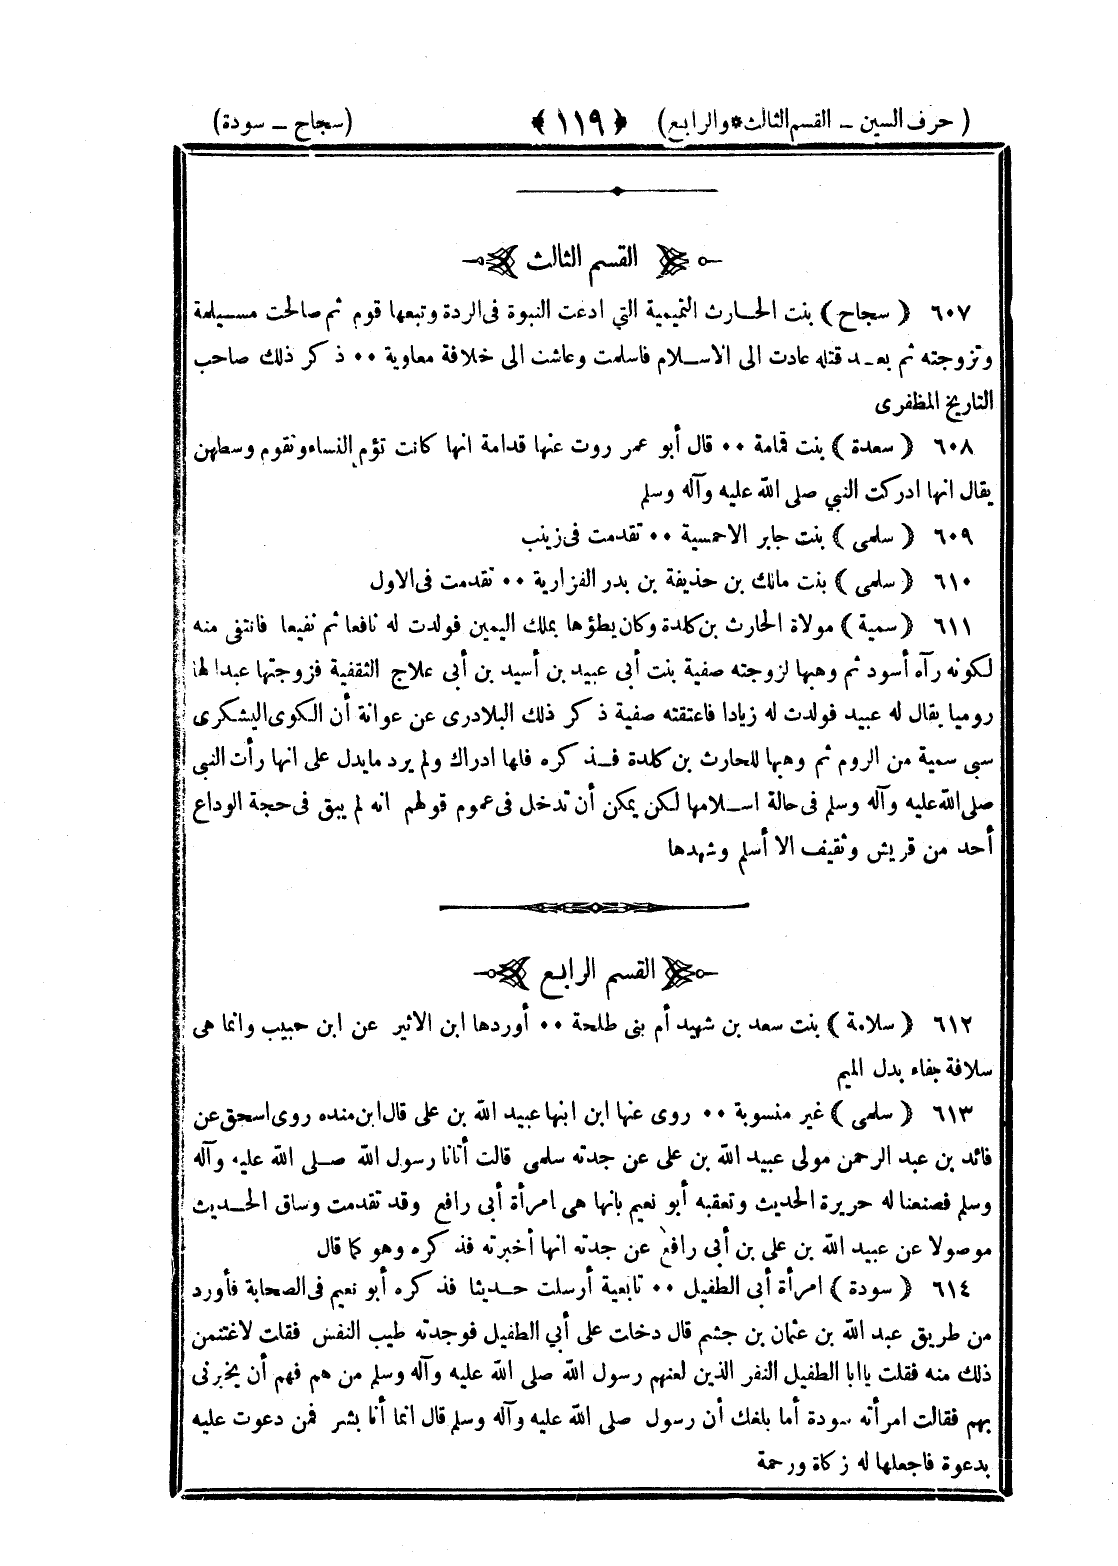 ( حرف السين – القسم الثالث * والرابع ) ﴿ ١١٩ ﴾ (سجاح – سودة)
القسم الثالث
٦٠٧ ( سجاح ) بنت الحارث التميمية التي ادعت النبوة فى الردة وتبعها قوم ثم صالحت مسيلمة
وتزوجته ثم بعد قتله عادت الى الاسلام فاسلمت وعاشت الى خلافة معاوية ٠٠ ذكر ذلك صاحب
التاريخ المظفرى
٦٠٨ ( سعدة ) بنت قمامة ٠٠ قال أبو عمر روت عنها قدامة انها كانت تؤم النساء وتقوم وسطهن
يقال انها ادركت النبي صلى الله عليه وآله وسلم
٦٠٩ ( سلمى ) بنت جابر الاحمسية ٠٠ تقدمت فى زينب
٦١٠ ( سلمى ) بنت مالك بن حذيفة بن بدر الفزارية ٠٠ تقدمت فى الاول
٦١١ ( سمية ) مولاة الحارث بن كلدة وكان يطؤها بملك اليمين فولدت له نافعا ثم نفيعا فانتفى منه
لكونه رآه أسود ثم وهبها لزوجته صفية بنت أبى عبيد بن أسيد بن أبى علاج الثقفية فزوجتها عبدا لها
روميا يقال له عبيد فولدت له زيادا فاعتقته صفية ذكر ذلك البلادرى عن عوانة أن الكوى اليشكرى
سبى سمية من الروم ثم وهبها للحارث بن كلدة فذكره فلها ادراك ولم يرد مايدل على انها رأت النبى
صلى الله عليه وآله وسلم فى حالة اسلامها لكن يمكن أن تدخل فى عموم قولهم انه لم يبق فى حجة الوداع
أحد من قريش وثقيف الا أسلم وشهدها
القسم الرابع
٦١٢ ( سلامة ) بنت سعد بن شهيد أم بنى طلحة ٠٠ أوردها ابن الاثير عن ابن حبيب وانما هى
سلافة بفاء بدل الميم
٦١٣ ( سلمى ) غير منسوبة ٠٠ روى عنها ابن ابنها عبيد الله بن على قال ابن منده روى اسحق عن
فائد بن عبد الرحمن مولى عبيد الله بن على عن جدته سلمى قالت أتانا رسول الله صلى الله عليه وآله
وسلم فصنعنا له حريرة الحديث وتعقبه أبو نعيم بانها هى امرأة أبى رافع وقد تقدمت وساق الحديث
موصولا عن عبيد الله بن على بن أبى رافع عن جدته انها أخبرته فذكره وهو كما قال
٦١٤ ( سودة ) امرأة أبى الطفيل ٠٠ تابعية أرسلت حديثا فذكره أبو نعيم فى الصحابة فأورد
من طريق عبد الله بن عثمان بن جشم قال دخلت على أبي الطفيل فوجدته طيب النفس فقلت لاغتنمن
ذلك منه فقلت ياابا الطفيل النفر الذين لعنهم رسول الله صلى الله عليه وآله وسلم من هم فهم أن يخبرنى
بهم فقالت امرأته سودة أما بلغك أن رسول صلى الله عليه وآله وسلم قال انما أنا بشر فمن دعوت عليه
بدعوة فاجعلها له زكاة ورحمة